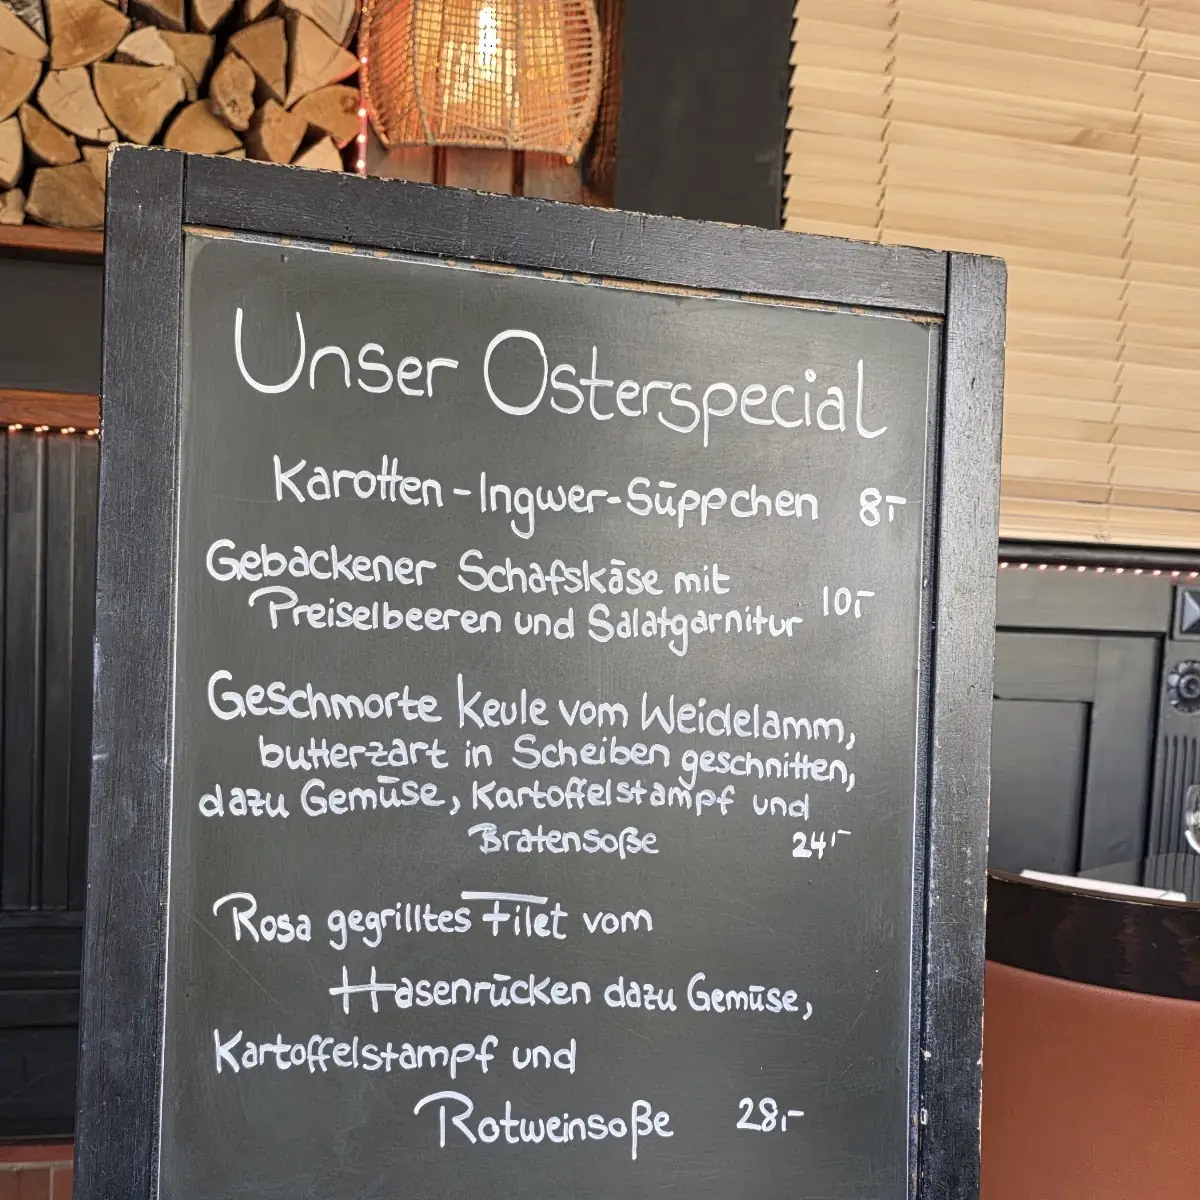 Unser Osterspecial
Karotten-Ingwer-Süppchen 8,-
Gebackener Schafskäse mit
Preiselbeeren und Salatgarnitur 10,-
Geschmorte Keule vom Weidelamm,
butterzart in Scheiben geschnitten,
dazu Gemüse, Kartoffelstampf und
Bratensoße 24,-
Rosa gegrilltes Filet vom
Hasenrücken dazu Gemüse,
Kartoffelstampf und
Rotweinsoße 28,-